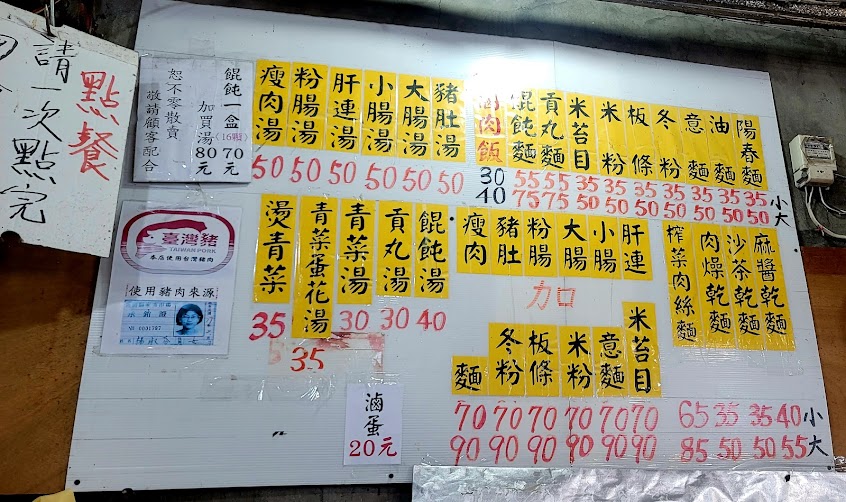 點餐
請一次點完
餛飩一盒(16顆)70元
加買湯80元
恕不零散賣
敬請顧客配合
瘦肉湯 粉腸湯 肝連湯 小腸湯 大腸湯 豬肚湯
50 50 50 50 50 50
滷肉飯 餛飩麵 貢丸麵 米苔目 米粉 板條 冬粉 意麵 油麵 陽春麵
30 55 55 35 35 35 35 35 35 35 小
40 75 75 50 50 50 50 50 50 50 大
臺灣豬
TAIWAN PORK
本店使用台灣豬肉
使用豬肉來源
燙青菜 青菜蛋花湯 青菜湯 貢丸湯 餛飩湯
35 35 30 30 40
瘦肉 豬肚 粉腸 大腸 小腸 肝連
加
麵 冬粉 板條 米粉 意麵 米苔目
70 70 70 70 70 70
90 90 90 90 90 90
榨菜肉絲麵 肉燥乾麵 沙茶乾麵 麻醬乾麵
65 35 35 40 小
85 50 50 55 大
滷蛋
20元